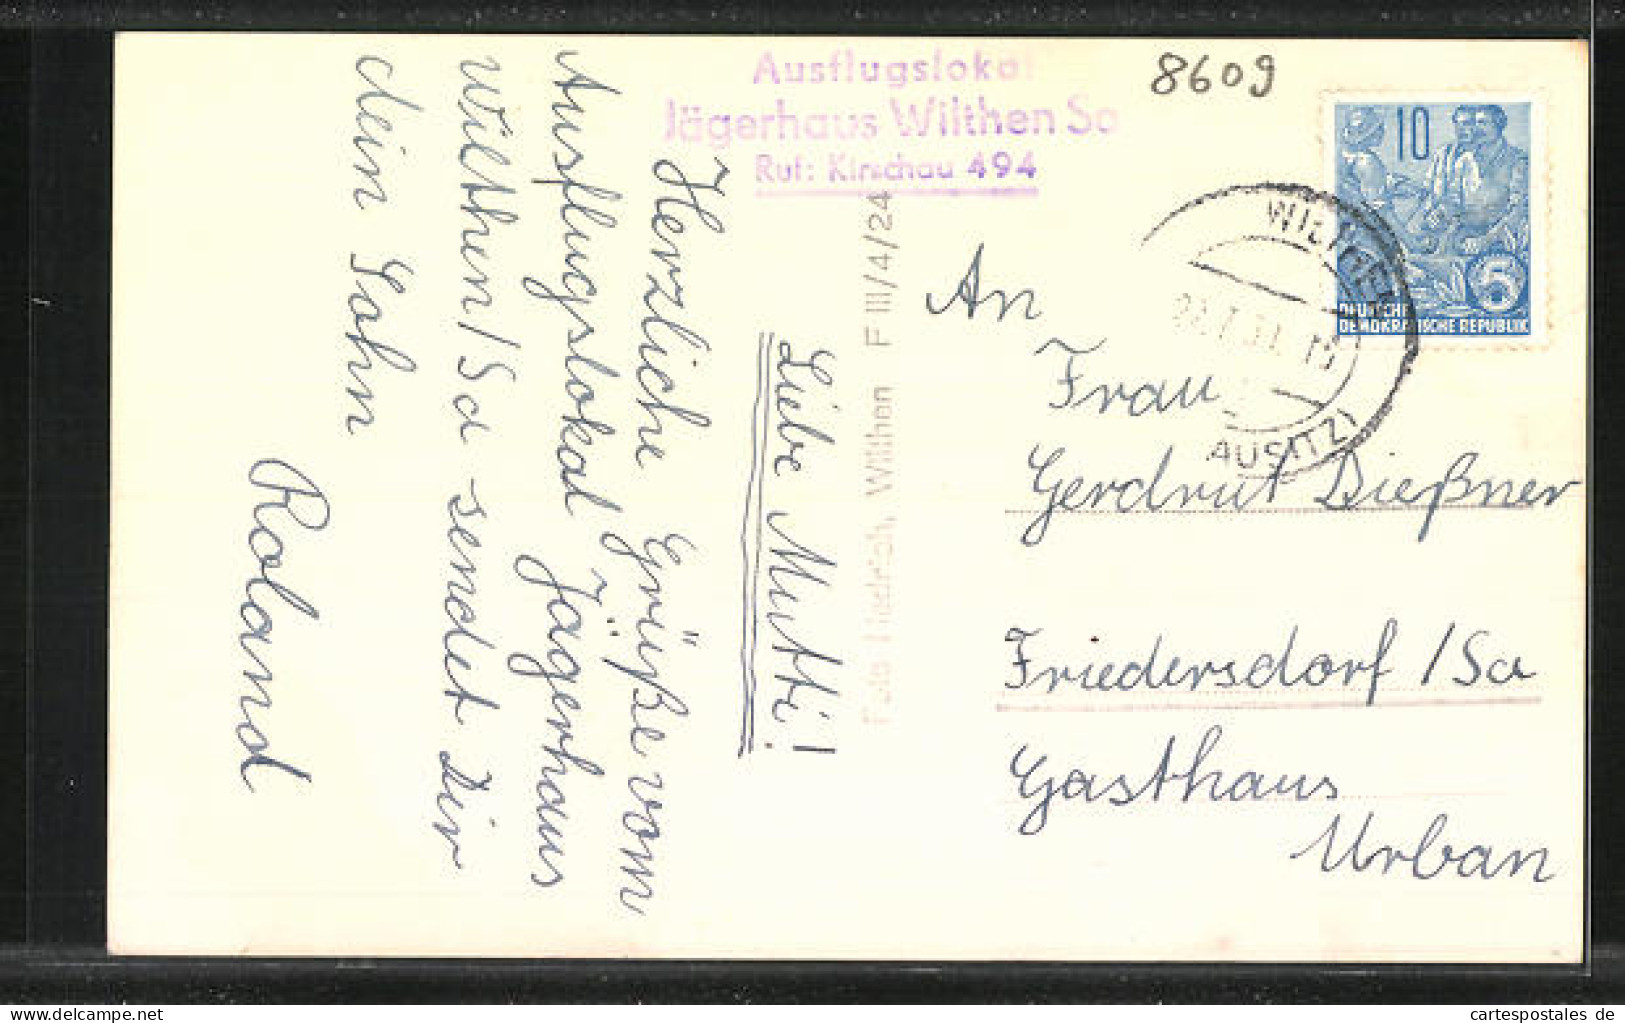 Ausflugslokal
Jägerhaus Wilthen Sa
Ruf: Kirschau 494
8609
10
5
DEUTSCHE
DEMOKRATISCHE REPUBLIK
WILTHEN
LAUSITZ)
Liebe Mutti!
Herzliche Grüße vom
Ausflugslokal Jägerhaus
Wilthen/Sa sendet Dir
dein Sohn
Roland
Wilthen F III/4/24
An
Frau
Gerdrut Dießner
Friedersdorf /Sa
Gasthaus
Urban
www.delcampe.net
cartespostales de